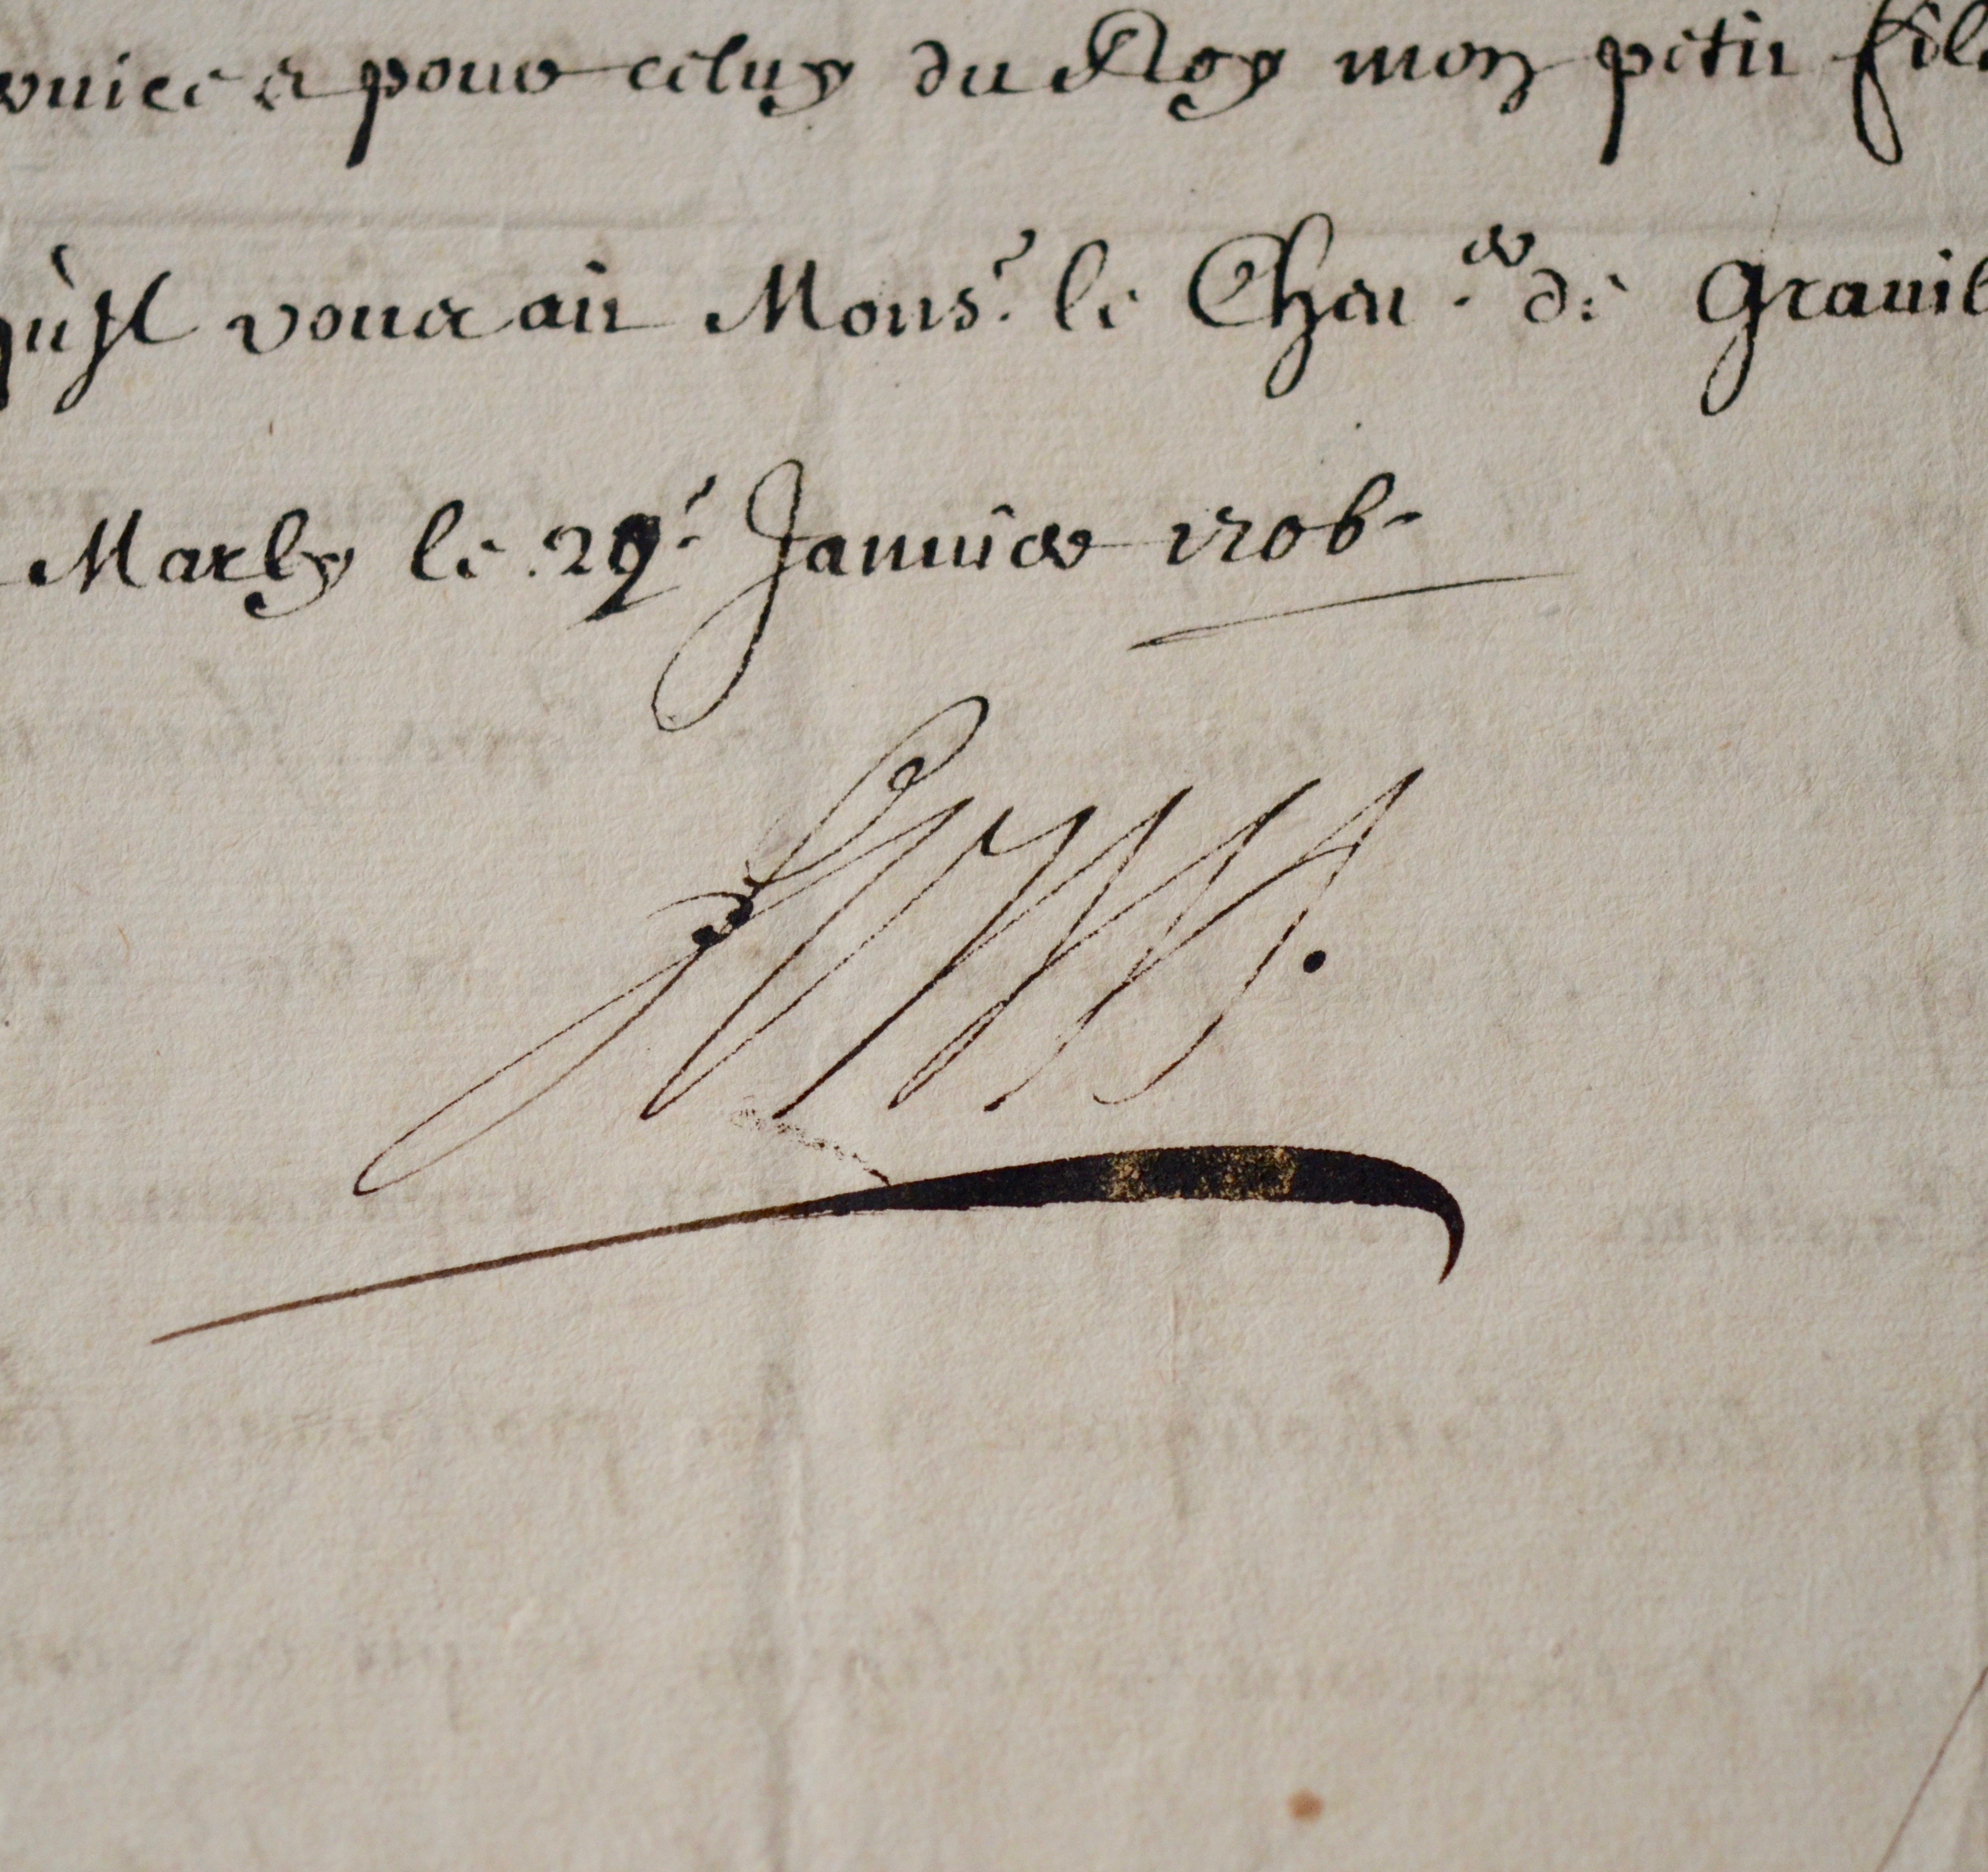 seruice & pour celuy du Roy mon petit fils
qu'Il vous ait Mons.r le Cheu.er de Grauil
Marly le 29.e Januier 1706.
Louis.